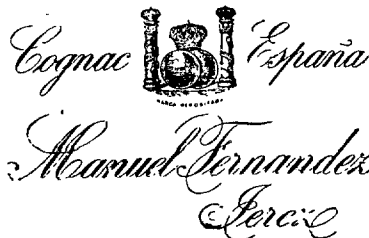 Cognac España
MARCA DEPOSITADA
Manuel Fernandez
Jerez